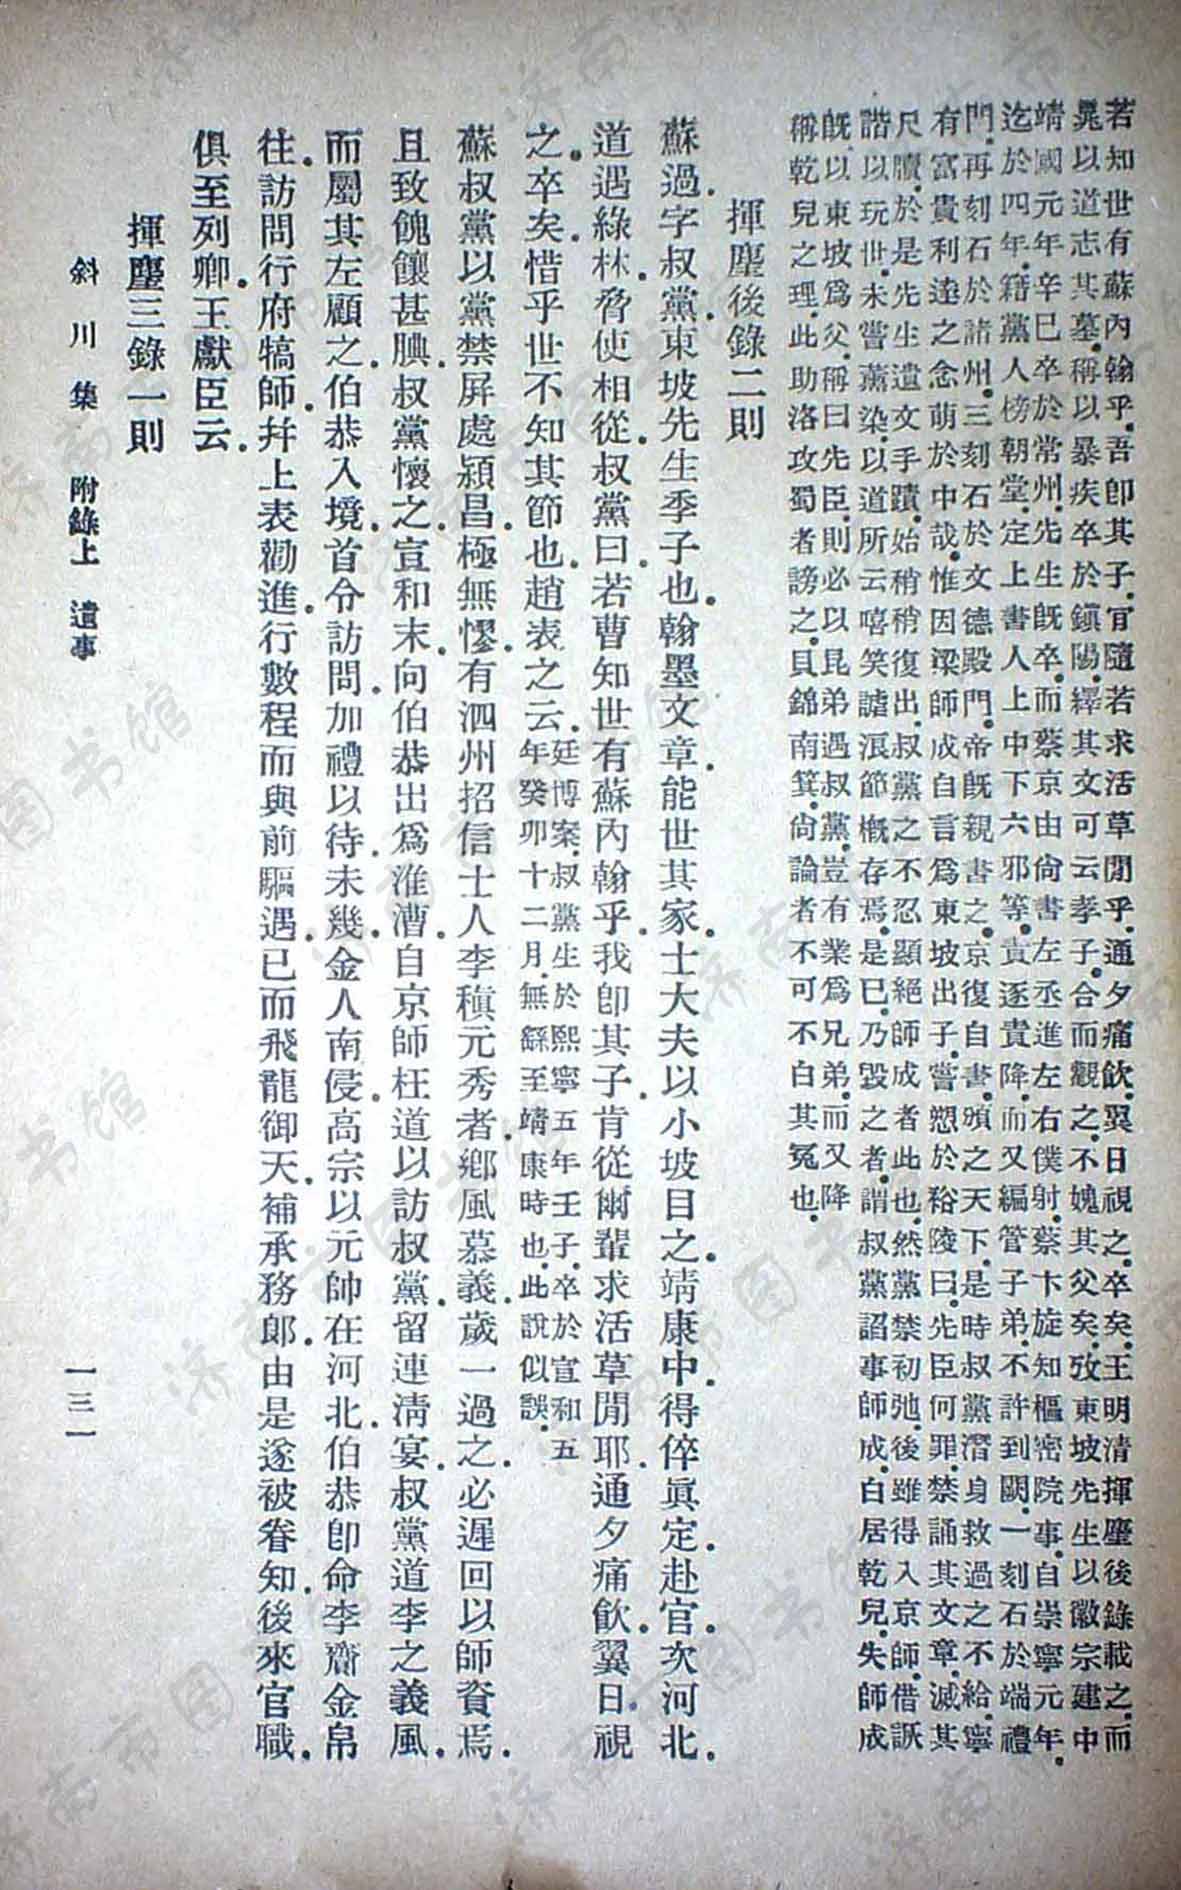 若知世有蘇內翰乎.吾卽其子.肎隨若求活草閒乎.通夕痛飲.翼日視之.卒矣.王明清揮麈後錄載之.而
晁以道志其墓.稱以暴疾卒於鎭陽.繹其文可云孝子.合而觀之.不媿其父矣.攷東坡先生以徽宗建中
靖國元年辛巳卒於常州.先生旣卒.而蔡京由尙書左丞進左右僕射.蔡卞旋知樞密院事.自崇寧元年.
迄於四年.籍黨人榜朝堂.定上書人上中下六邪等.責逐貴降.而又編管子弟.不許到闕.一刻石於端禮
門.再刻石於諸州.三刻石於文德殿門.帝旣親書之.京復自書.頒之天下.是時叔黨潛身救過之不給.寧
有富貴利達之念萌於中哉.惟因梁師成自言爲東坡出子.嘗愬於裕陵曰.先臣何罪.禁誦其文章.滅其
尺牘.於是先生遺文手蹟.始稍稍復出.叔黨之不忍顯絕師成者此也.然黨禁初弛.後雖得入京師.借詼
諧以玩世.未嘗薰染.以道所云嘻笑謔浪節槪存焉.是巳.乃毀之者.謂叔黨諂事師成.白居乾兒.失師成
旣以東坡爲父.稱曰先臣.則必以昆弟遇叔黨.豈有業爲兄弟.而又降
稱乾兒之理.此助洛攻蜀者謗之.貝錦南箕.尙論者不可不白其冤也.
揮麈後錄二則
蘇過.字叔黨.東坡先生季子也.翰墨文章.能世其家.士大夫以小坡目之.靖康中.得倅眞定.赴官.次河北.
道遇綠林.脅使相從.叔黨曰.若曹知世有蘇內翰乎.我卽其子.肯從爾輩求活草閒耶.通夕痛飲.翼日.視
之.卒矣.惜乎世不知其節也.趙表之云.廷博案.叔黨生於熙寧五年壬子.卒於宣和五
年癸卯十二月.無繇至靖康時也.此說似誤.
蘇叔黨以黨禁屏處潁昌.極無憀.有泗州招信士人李稹元秀者.鄕風慕義.歲一過之.必遲回以師資焉.
且致餽饟甚腆.叔黨懷之.宣和末.向伯恭出爲淮漕.自京師枉道以訪叔黨.留連淸宴.叔黨道李之義風.
而屬其左顧之.伯恭入境.首令訪問.加禮以待.未幾.金人南侵.高宗以元帥在河北.伯恭卽命李齎金帛
往.訪問行府犒師.幷上表勸進.行數程而與前驅遇.已而飛龍御天.補承務郞.由是遂被眷知.後來官職.
俱至列卿.王獻臣云.
揮麈三錄一則
斜川集 附錄上 遺事 一三一